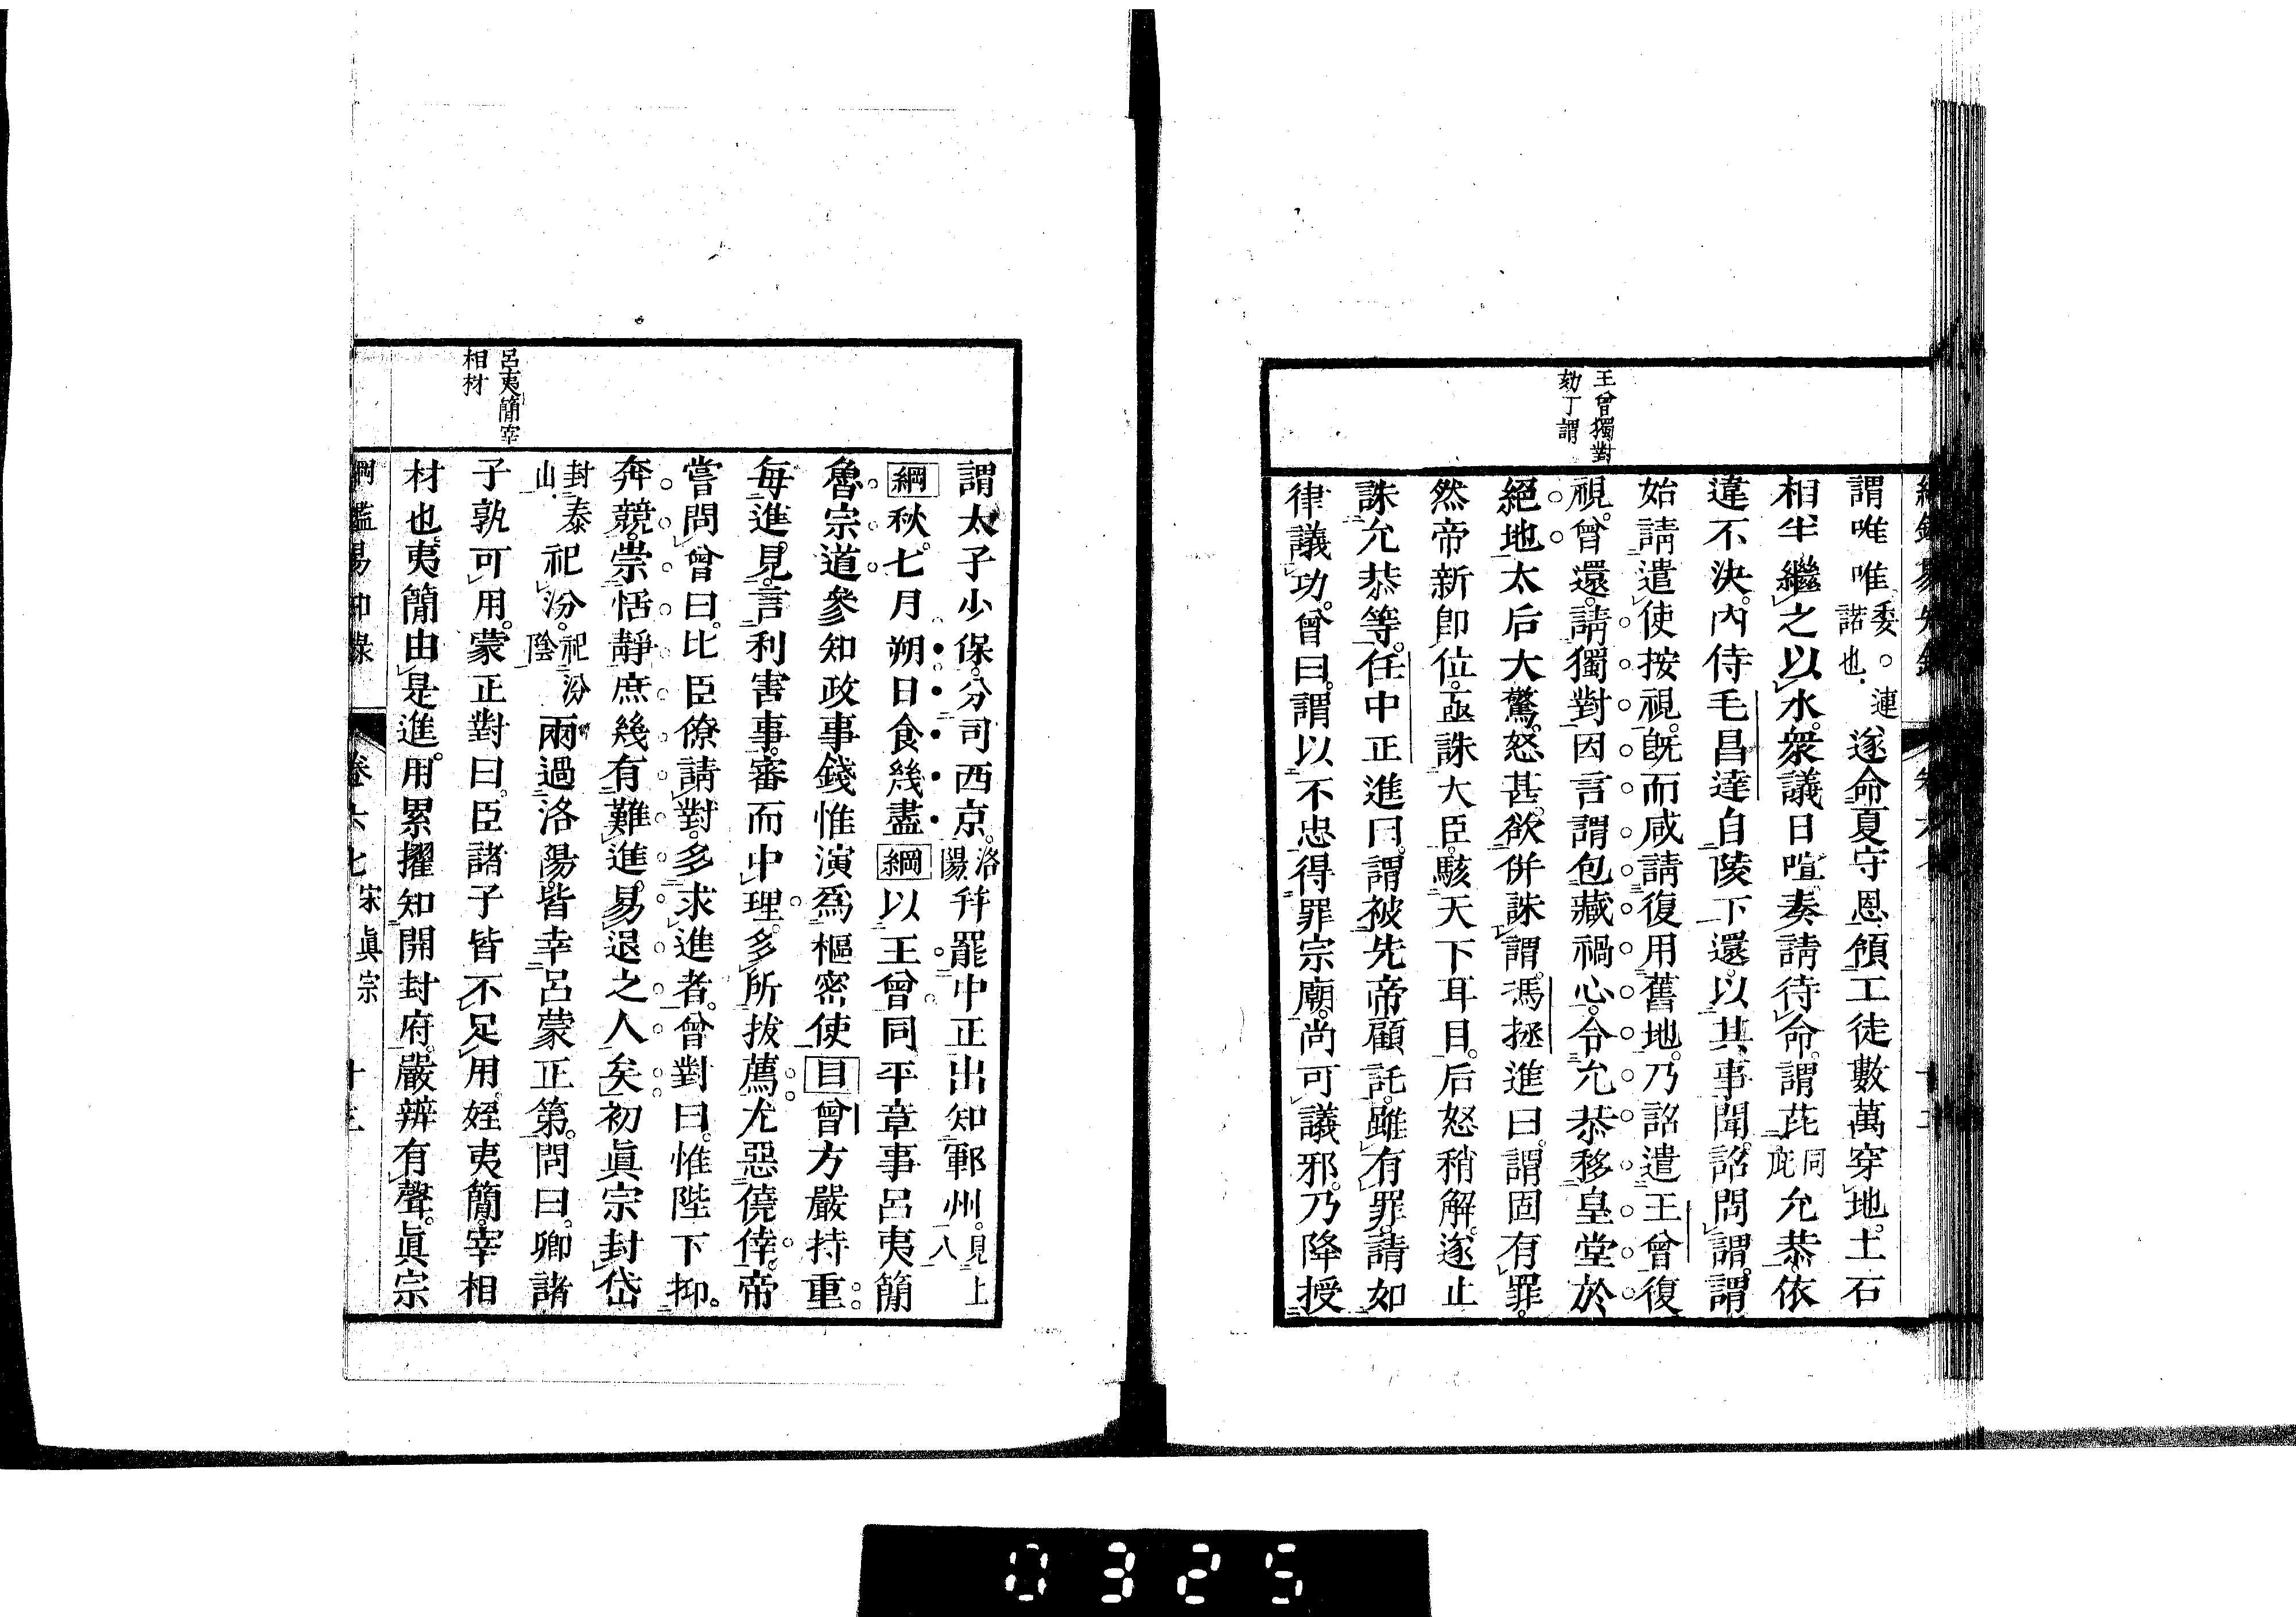 王曾獨對
劾丁謂
謂唯唯委。漣諾也.遂命夏守恩領工徒數萬穿地。土石
相半繼之以水。衆議日喧奏請待命。謂茈同庇允恭。依
違不決。內侍毛昌達自陵下還。以其事聞。詔問謂。謂
始請遣使按視。既而咸請復用舊地。乃詔遣王曾復
視。曾還。請獨對因言謂包藏禍心。令允恭移皇堂於
絕地太后大驚。怒甚。欲併誅謂。馮拯進曰。謂固有罪。
然帝新卽位。亟誅大臣。駭天下耳目。后怒稍解。遂止
誅允恭等。任中正進曰。謂被先帝顧託。雖有罪。請如
律議功。曾曰。謂以不忠得罪宗廟。尚可議邪。乃降授
呂夷簡宰
相材
謂太子少保。分司西京。洛陽幷罷中正出知鄆州。見上八
綱秋。七月朔日食幾盡綱以王曾同平章事呂夷簡
魯宗道參知政事錢惟演爲樞密使目曾方嚴持重
每進見。言利害事。審而中理。多所拔薦。尤惡僥倖。帝
嘗問曾曰。比臣僚請對。多求進者。曾對曰。惟陛下抑
奔競。崇恬靜庶幾有難進。易退之人矣初眞宗封岱
封泰山.祀汾。祀汾陰兩過洛陽。皆幸呂蒙正第。問曰。卿諸
子孰可用。蒙正對曰。臣諸子皆不足用。姪夷簡。宰相
材也。夷簡由是進。用累擢知開封府。嚴辨有聲。眞宗
綱鑑易知錄 卷六七 宋眞宗